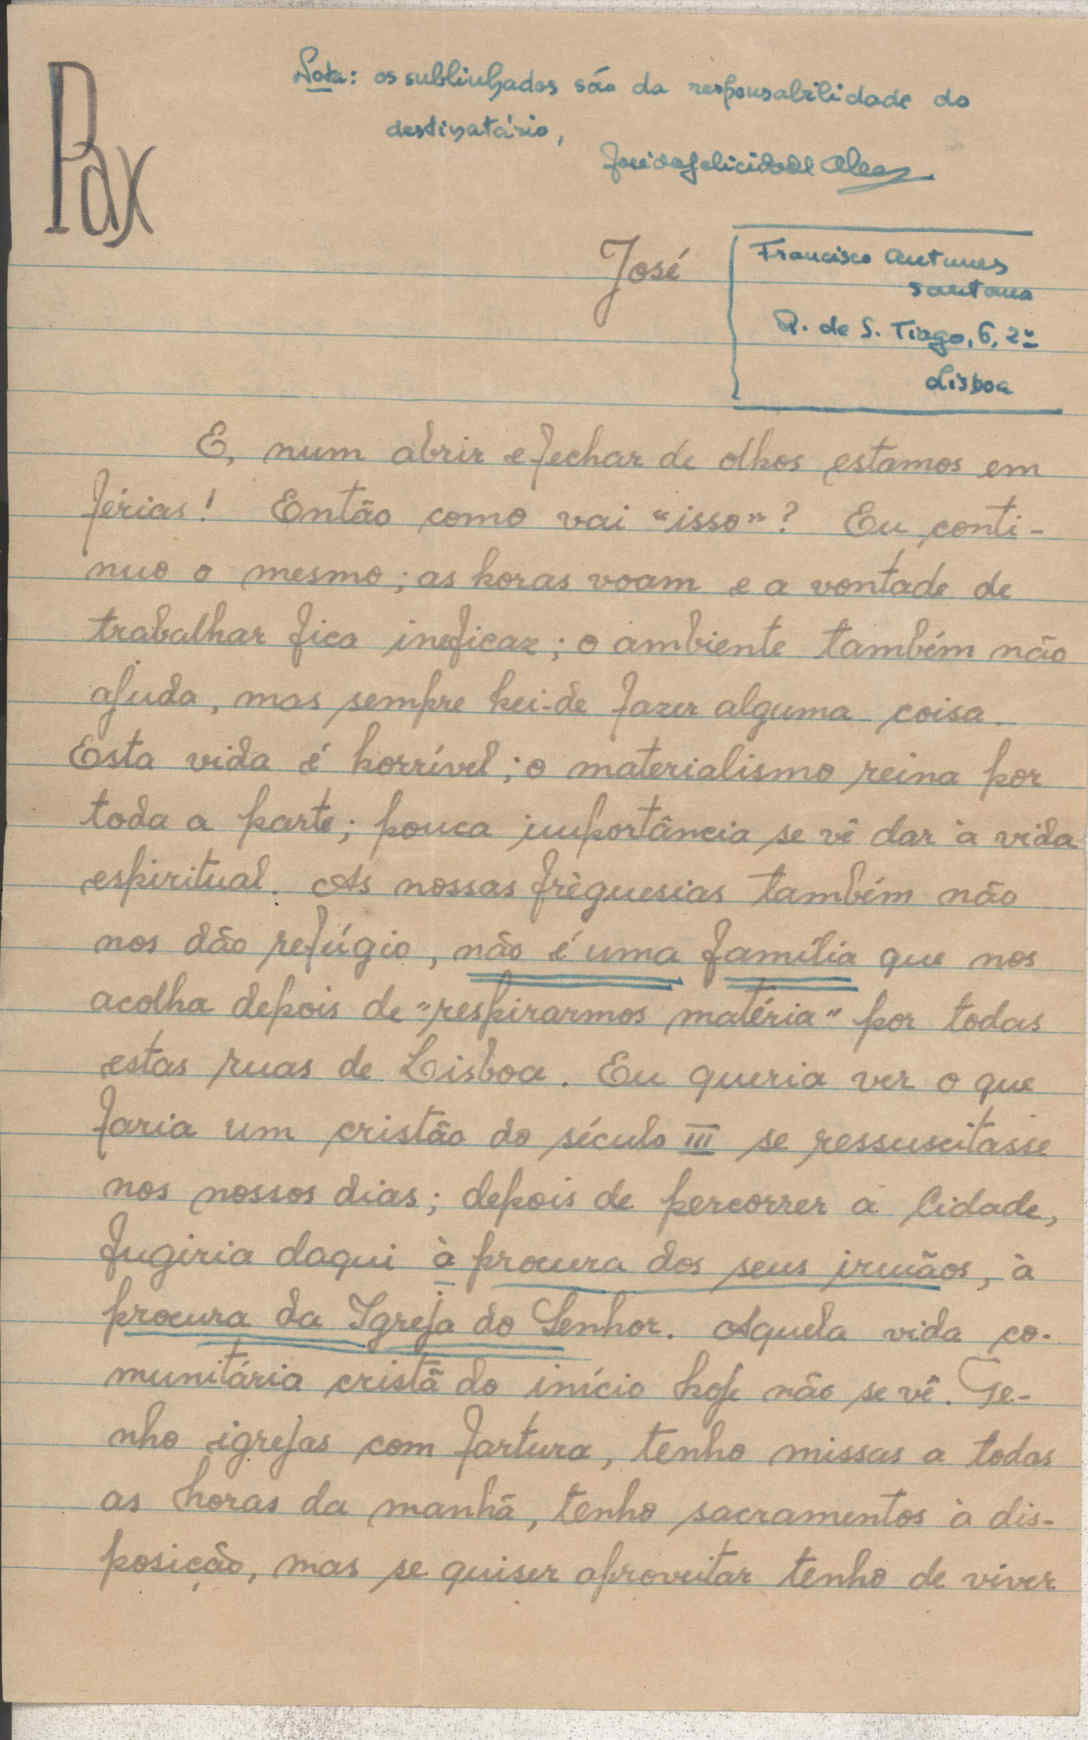 Pax
Nota: os sublinhados são da responsabilidade do
destinatário,
José da Felicidade Alves
José
Francisco Antunes
Santana
R. de S. Tiago, 6, 2º
Lisboa
E, num abrir e fechar de olhos estamos em
férias! Então como vai "isso"? Eu conti-
nuo o mesmo; as horas voam e a vontade de
trabalhar fica ineficaz; o ambiente também não
ajuda, mas sempre hei-de fazer alguma coisa.
Esta vida é horrível; o materialismo reina por
toda a parte; pouca importância se vê dar à vida
espiritual. As nossas frèguesias também não
nos dão refúgio, não é uma família que nos
acolha depois de "respirarmos matéria" por todas
estas ruas de Lisboa. Eu queria ver o que
faria um cristão do século III se ressuscitasse
nos nossos dias; depois de percorrer a Cidade,
fugiria daqui à procura dos seus irmãos, à
procura da Igreja do Senhor. Aquela vida co-
munitária cristã do início hoje não se vê. Te-
nho igrejas com fartura, tenho missas a todas
as horas da manhã, tenho sacramentos à dis-
posição, mas se quiser aproveitar tenho de viver